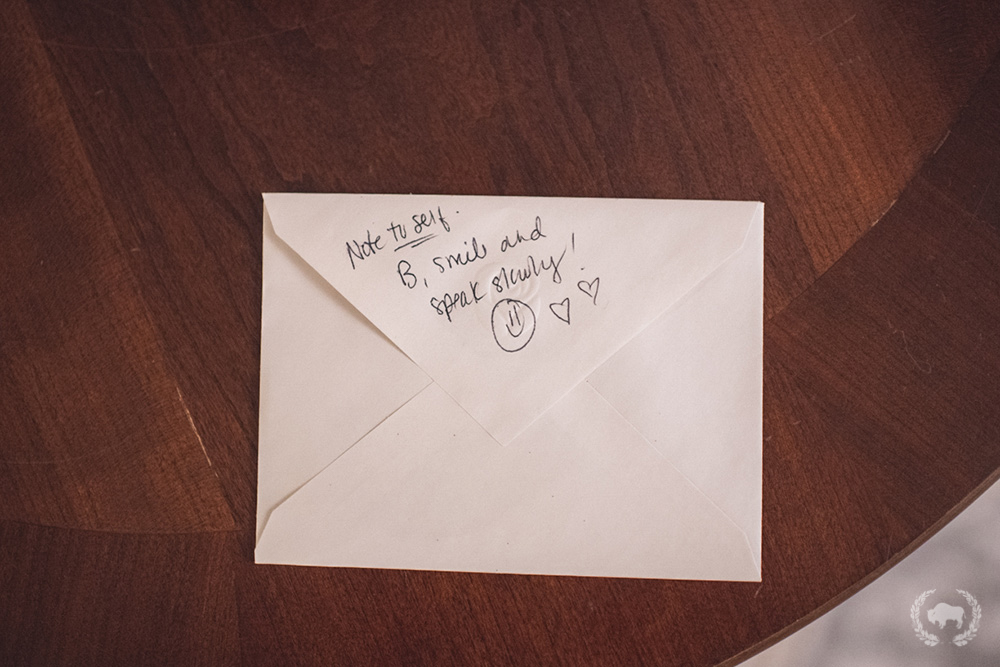 Note to self.
B, smile and
speak slowly!